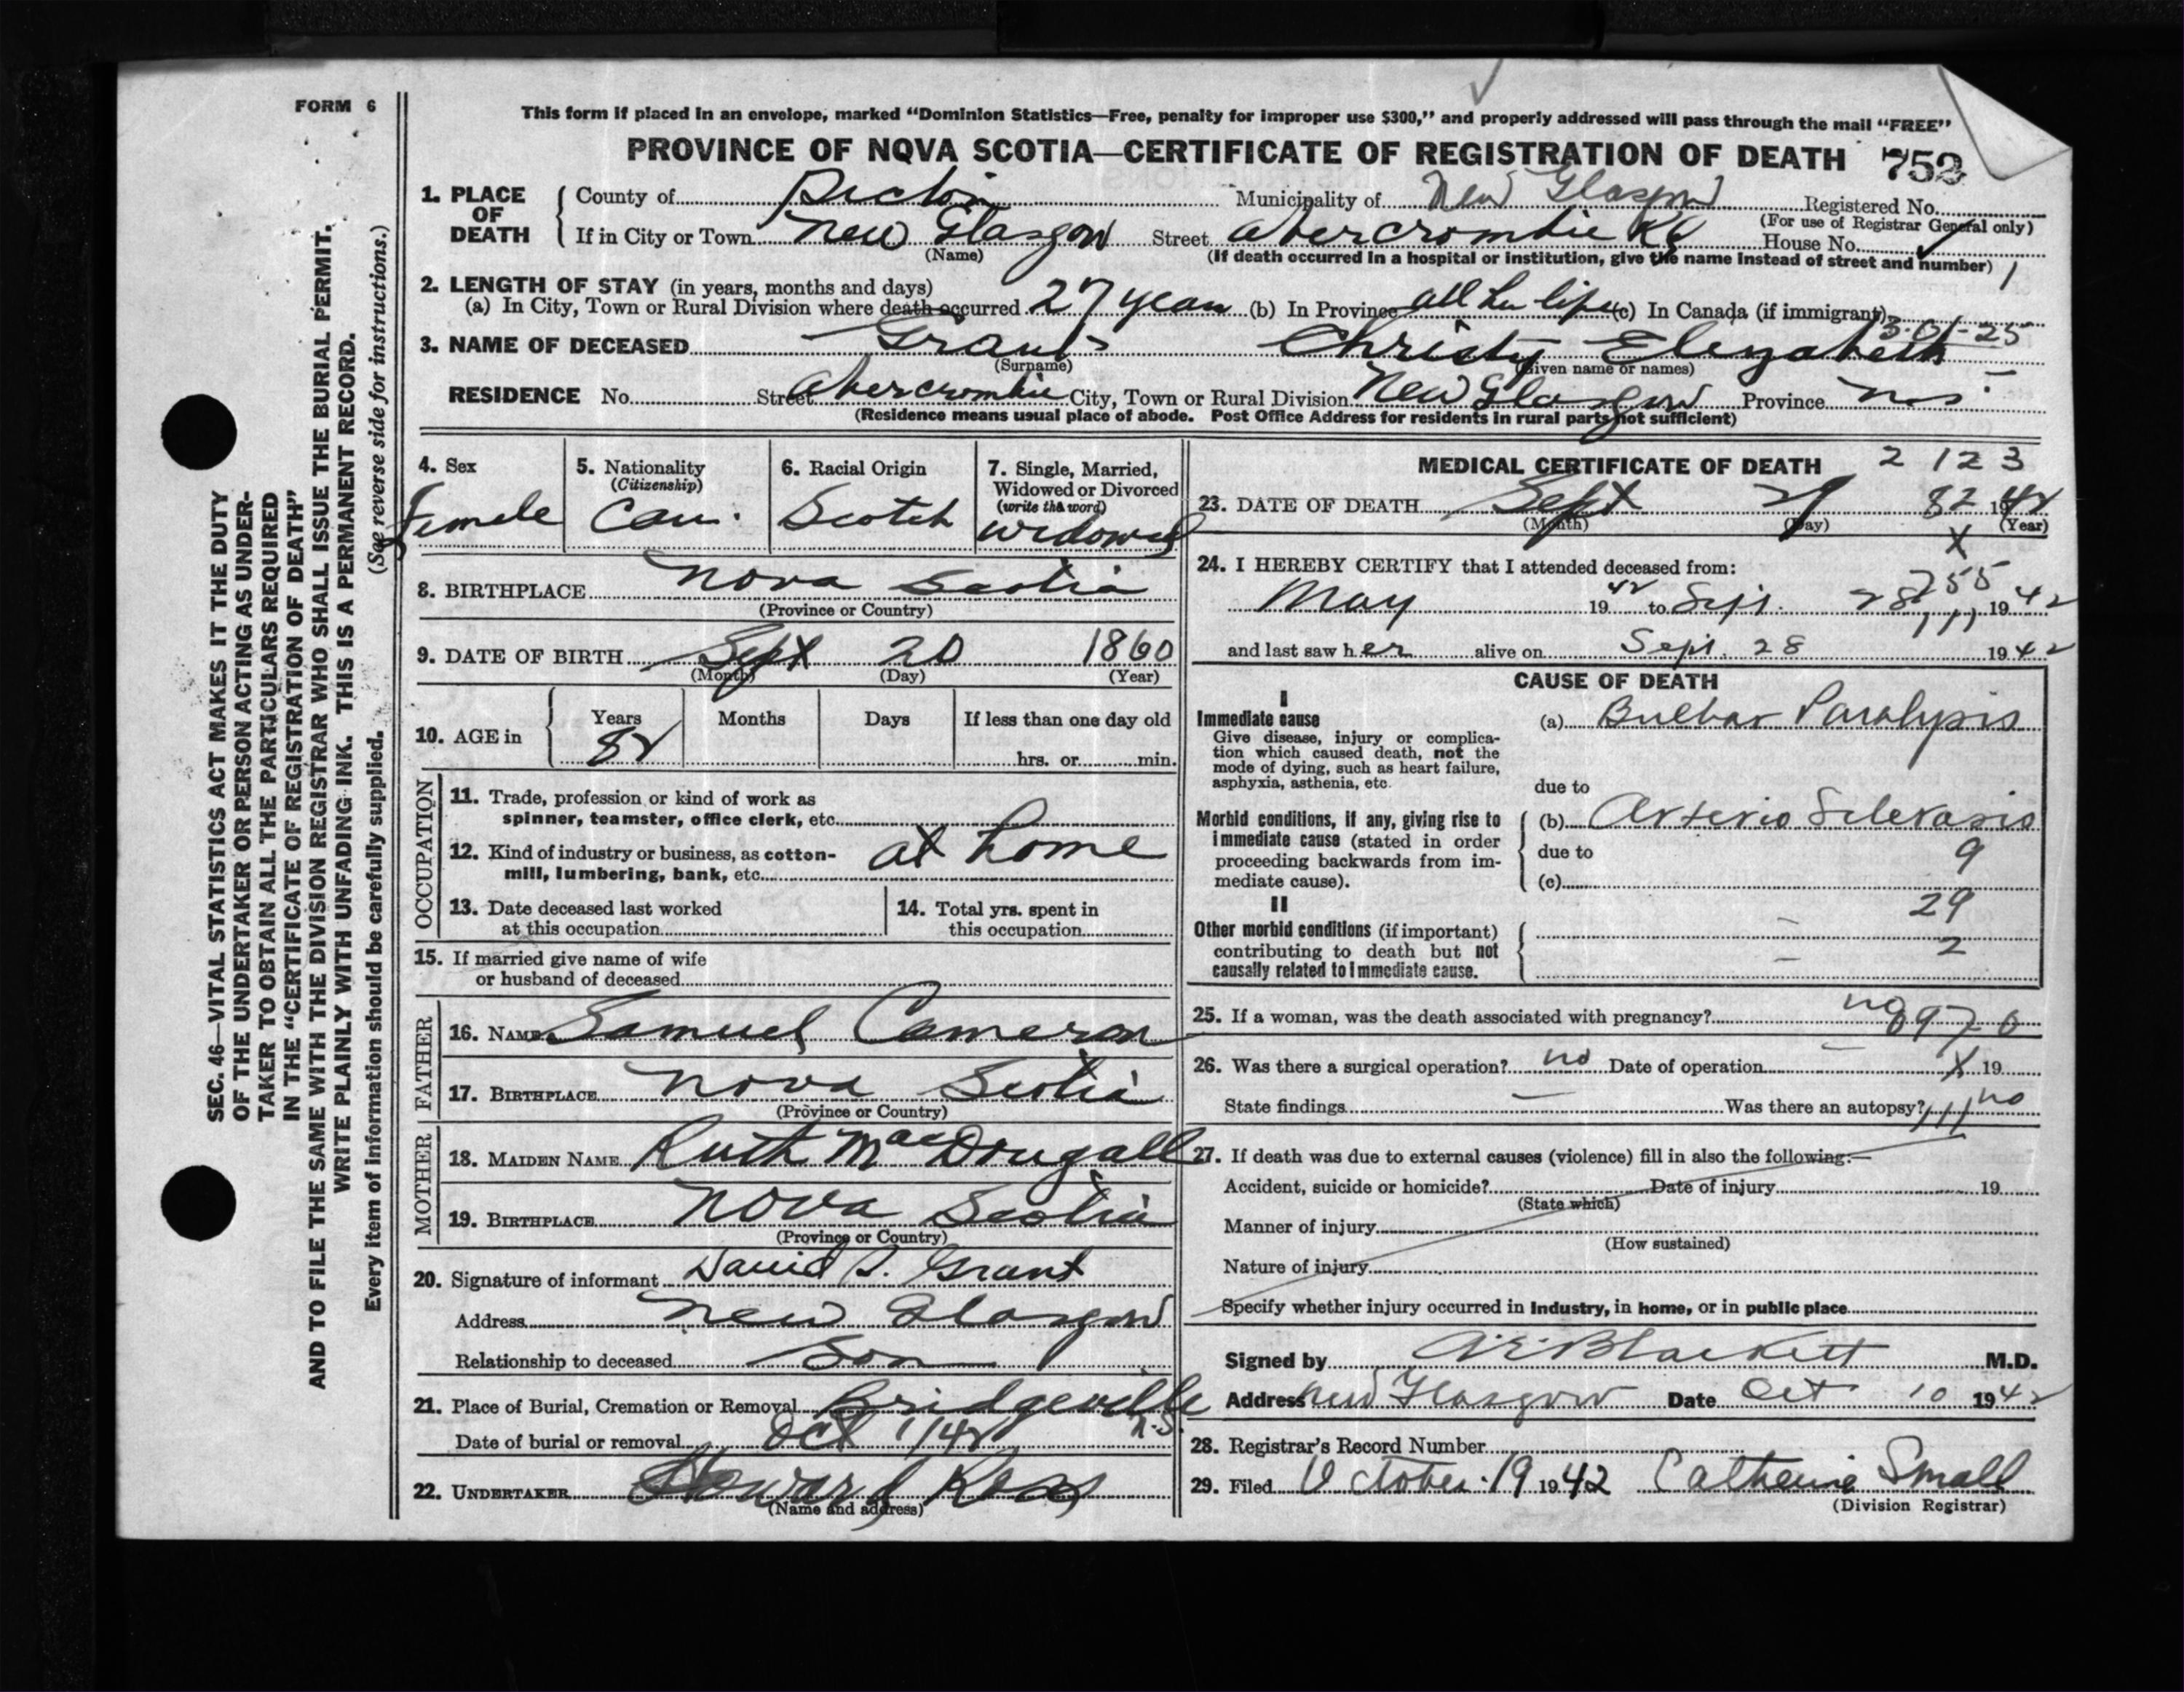 FORM 6
This form if placed in an envelope, marked "Dominion Statistics—Free, penalty for improper use $300," and properly addressed will pass through the mail "FREE"
PROVINCE OF NOVA SCOTIA—CERTIFICATE OF REGISTRATION OF DEATH 752
1. PLACE OF DEATH
County of Pictou Municipality of New Glasgow Registered No.
(For use of Registrar General only)
If in City or Town New Glasgow Street Abercrombie Rd House No.
(Name)
(If death occurred in a hospital or institution, give the name instead of street and number) 1
2. LENGTH OF STAY (in years, months and days)
(a) In City, Town or Rural Division where death occurred 27 years (b) In Province all her life (c) In Canada (if immigrant)
3. NAME OF DECEASED Grant Christy Elizabeth
(Surname) (Given name or names)
RESIDENCE No. Street Abercrombie City, Town or Rural Division New Glasgow Province N.S.
(Residence means usual place of abode. Post Office Address for residents in rural parts not sufficient)
4. Sex
Female
5. Nationality
(Citizenship)
Can.
6. Racial Origin
Scotch
7. Single, Married,
Widowed or Divorced
(write the word)
widowed
8. BIRTHPLACE Nova Scotia
(Province or Country)
9. DATE OF BIRTH Sept 20 1860
(Month) (Day) (Year)
10. AGE in
Years Months Days If less than one day old
82 hrs. or min.
OCCUPATION
11. Trade, profession or kind of work as
spinner, teamster, office clerk, etc.
12. Kind of industry or business, as cotton-
mill, lumbering, bank, etc. at home
13. Date deceased last worked
at this occupation
14. Total yrs. spent in
this occupation
15. If married give name of wife
or husband of deceased
FATHER
16. NAME Samuel Cameron
17. BIRTHPLACE Nova Scotia
(Province or Country)
MOTHER
18. MAIDEN NAME Ruth MacDougall
19. BIRTHPLACE Nova Scotia
(Province or Country)
20. Signature of informant David S. Grant
Address New Glasgow
Relationship to deceased Son
21. Place of Burial, Cremation or Removal Bridgeville
N.S.
Date of burial or removal Oct 1/42
22. UNDERTAKER Howard Ross
(Name and address)
MEDICAL CERTIFICATE OF DEATH 2 12 3
23. DATE OF DEATH Sept 29 82 1942
(Month) (Day) (Year)
X
24. I HEREBY CERTIFY that I attended deceased from:
May 1942 to Sept. 28 1942
and last saw her alive on Sept. 28 1942
CAUSE OF DEATH
I
Immediate cause
Give disease, injury or complica-
tion which caused death, not the
mode of dying, such as heart failure,
asphyxia, asthenia, etc.
(a) Bulbar Paralysis
due to
Morbid conditions, if any, giving rise to
immediate cause (stated in order
proceeding backwards from im-
mediate cause).
(b) Arterio Sclerosis
due to 9
(c)
29
II
Other morbid conditions (if important)
contributing to death but not
causally related to immediate cause.
2
25. If a woman, was the death associated with pregnancy? no
26. Was there a surgical operation? no Date of operation X 19
State findings Was there an autopsy? no
27. If death was due to external causes (violence) fill in also the following:—
Accident, suicide or homicide? Date of injury 19
(State which)
Manner of injury
(How sustained)
Nature of injury
Specify whether injury occurred in industry, in home, or in public place
Signed by A E Blackett M.D.
Address New Glasgow Date Oct 10 1942
28. Registrar's Record Number
29. Filed October 19 1942 Catherine Small
(Division Registrar)
SEC. 46—VITAL STATISTICS ACT MAKES IT THE DUTY
OF THE UNDERTAKER OR PERSON ACTING AS UNDER-
TAKER TO OBTAIN ALL THE PARTICULARS REQUIRED
IN THE "CERTIFICATE OF REGISTRATION OF DEATH"
AND TO FILE THE SAME WITH THE DIVISION REGISTRAR WHO SHALL ISSUE THE BURIAL PERMIT.
WRITE PLAINLY WITH UNFADING INK. THIS IS A PERMANENT RECORD.
Every item of information should be carefully supplied. (See reverse side for instructions.)